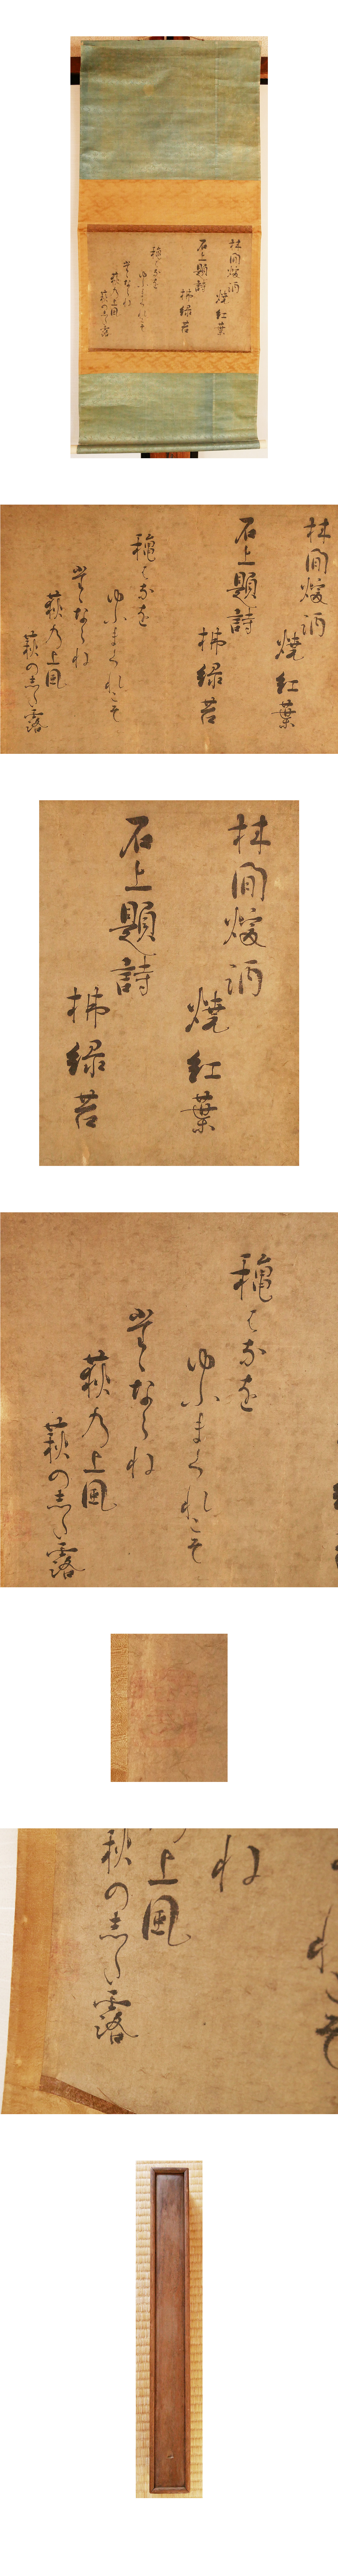 林間煖酒
焼紅葉
石上題詩
拂緑苔
穐はなを
ゆふまくれこそ
たゝならね
荻乃上風
萩のした露
林間煖酒
焼紅葉
石上題詩
拂緑苔
穐はなを
ゆふまくれこそ
たゝならね
荻乃上風
萩のした露
林間煖酒
焼紅葉
石上題詩
拂緑苔
穐はなを
ゆふまくれこそ
たゝならね
荻乃上風
萩のした露
ね
上風
萩のした露